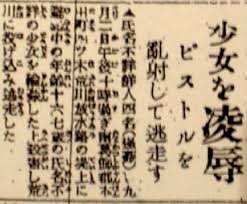 少女を凌辱
ピストルを
亂射して逃走す
▲氏名不詳鮮人四名 九
月二日午後十時過ぎ南葛飾郡本
田町 ツ木荒川放水路の堤上に
避難中の年 十六七歳の氏名不
詳の少女を輪姦した上殺害し荒
川に投げ込み逃走した